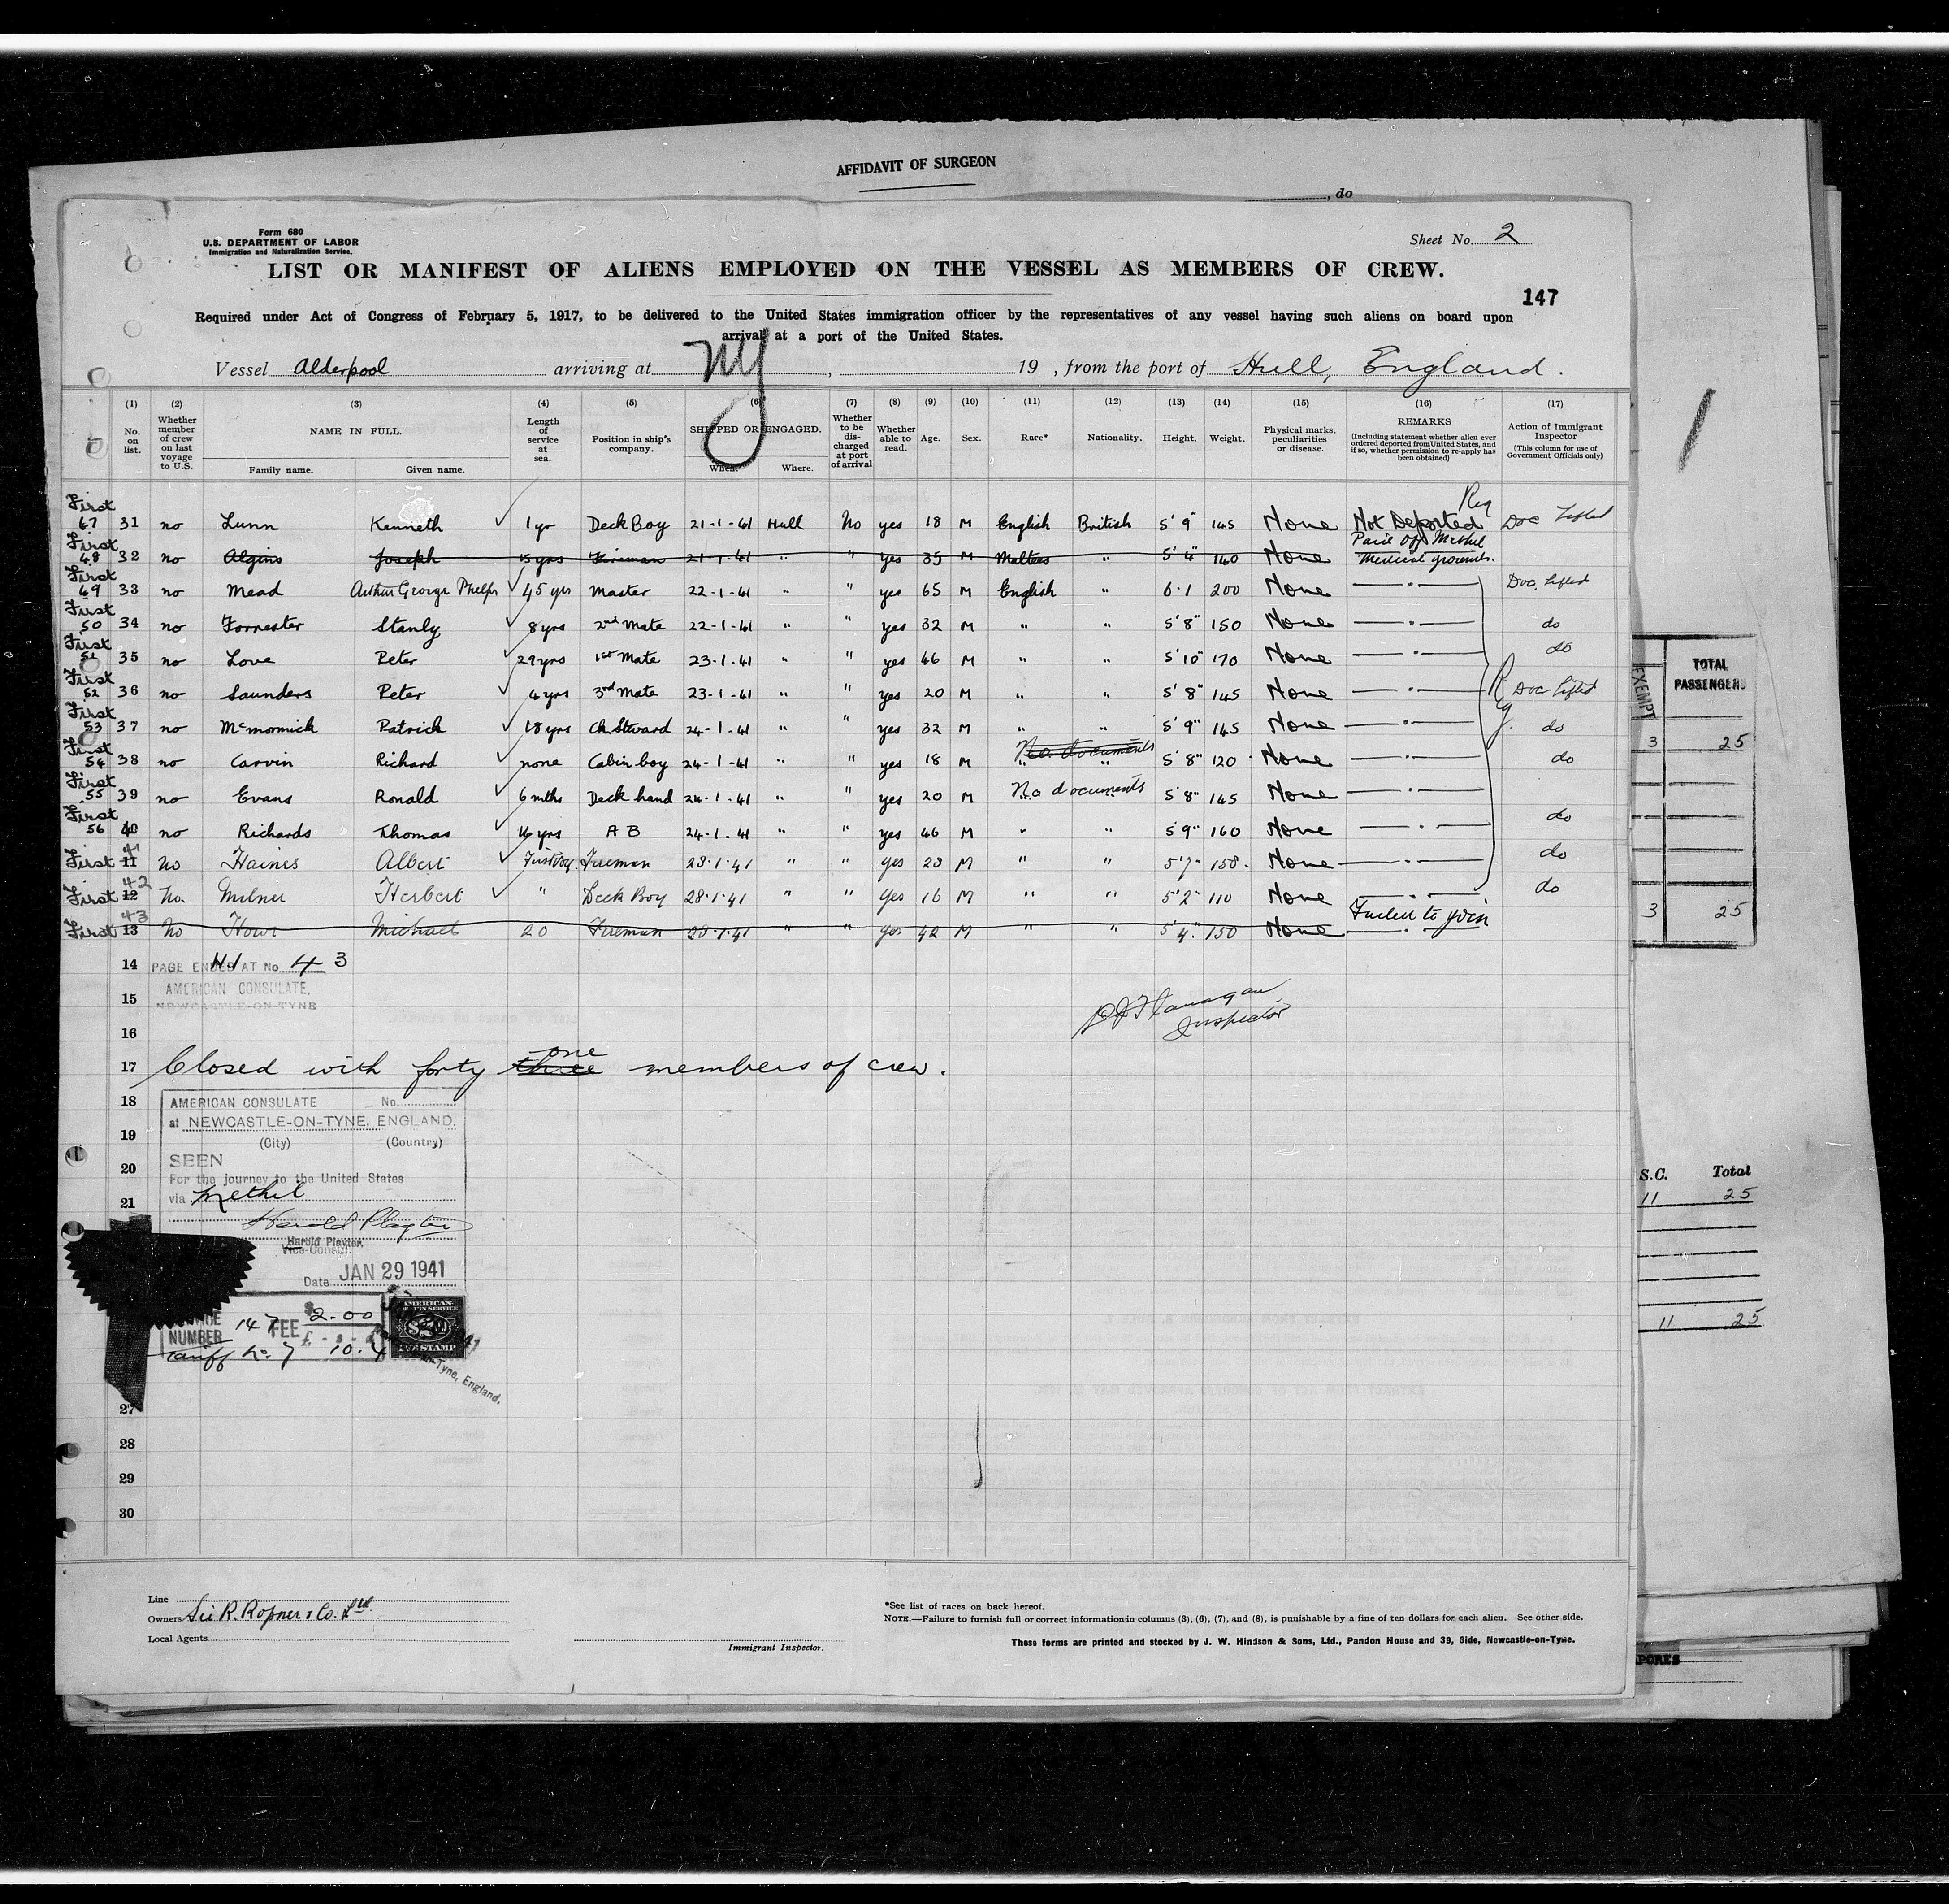 AFFIDAVIT OF SURGEON
, do
Form 680
U.S. DEPARTMENT OF LABOR
Immigration and Naturalization Service.
Sheet No. 2
LIST OR MANIFEST OF ALIENS EMPLOYED ON THE VESSEL AS MEMBERS OF CREW.
147
Required under Act of Congress of February 5, 1917, to be delivered to the United States immigration officer by the representatives of any vessel having such aliens on board upon
arrival at a port of the United States.
Vessel Alderpool arriving at NY , 19 , from the port of Hull, England.
(1) (2) (3) (4) (5) (6) (7) (8) (9) (10) (11) (12) (13) (14) (15) (16) (17)
No. on list. Whether member of crew on last voyage to U.S. NAME IN FULL. Family name. Given name. Length of service at sea. Position in ship's company. SHIPPED OR ENGAGED. When. Where. Whether to be discharged at port of arrival Whether able to read. Age. Sex. Race* Nationality. Height. Weight. Physical marks, peculiarities or disease. REMARKS (Including statement whether alien ever ordered deported from United States, and if so, whether permission to re-apply has been obtained) Action of Immigrant Inspector (This column for use of Government Officials only)
Reg
First 47 31 no Lunn Kenneth ✓ 1 yr Deck Boy 21-1-41 Hull No yes 18 M English British 5'9" 145 None Not Deported Doc Lifted
Paid Off Methil
First 48 32 no Algins Joseph 15 yrs Fireman 21-1-41 " " yes 35 M Maltese " 5'4" 140 None Medical grounds.
First 49 33 no Mead Arthur George Phelps ✓ 45 yrs Master 22-1-41 " " yes 65 M English " 6.1 200 None Doc. Lifted
First 50 34 no Forrester Stanly ✓ 8 yrs 2nd Mate 22-1-41 " " yes 32 M " " 5'8" 150 None do
First 51 35 no Love Peter ✓ 29 yrs 1st Mate 23-1-41 " " yes 46 M " " 5'10" 170 None do
First 52 36 no Saunders Peter ✓ 4 yrs 3rd Mate 23-1-41 " " yes 20 M " " 5'8" 145 None Reg. Doc Lifted
First 53 37 no McMormick Patrick ✓ 18 yrs Ch. Steward 24-1-41 " " yes 32 M " " 5'9" 145 None do
No documents
First 54 38 no Carvin Richard ✓ none Cabin boy 24-1-41 " " yes 18 M " " 5'8" 120 None do
First 55 39 no Evans Ronald ✓ 6 mths Deck hand 24-1-41 " " yes 20 M No documents 5'8" 145 None
First 56 40 no Richards Thomas ✓ 16 yrs A B 24-1-41 " " yes 46 M " " 5'9" 160 None do
First 11 41 No Haines Albert ✓ First Voy. Fireman 28.1.41 " " yes 20 M " " 5'7" 158 None do
First 12 42 No. Milner Herbert ✓ " Deck Boy 28.1.41 " " yes 16 M " " 5'2" 110 None do
Failed to join
First 13 43 No Howe Michael 20 Fireman 28.1.41 " " yes 42 M " " 5'4" 150 None
14 PAGE ENDED AT No. 43
15 AMERICAN CONSULATE,
NEWCASTLE-ON-TYNE
Flanagan
Inspector
16
one
17 Closed with forty three members of crew.
18 AMERICAN CONSULATE No.
at NEWCASTLE-ON-TYNE, ENGLAND.
19 (City) (Country)
SEEN
20 For the journey to the United States
21 via Methil
Harold Playter
Harold Playter,
Vice-Consul.
Date JAN 29 1941
NUMBER 147 FEE $2.00
Tariff No. 7 £ 10.4
AMERICAN
FEE STAMP
-Tyne, England.
27
28
29
30
Line
Owners Sir R. Ropner & Co. Ltd.
Local Agents
Immigrant Inspector.
*See list of races on back hereof.
NOTE.—Failure to furnish full or correct information in columns (3), (6), (7), and (8), is punishable by a fine of ten dollars for each alien. See other side.
These forms are printed and stocked by J. W. Hindson & Sons, Ltd., Pandon House and 39, Side, Newcastle-on-Tyne.
1
EXEMPT TOTAL PASSENGERS
3 25
3 25
S.C. Total
11 25
11 25